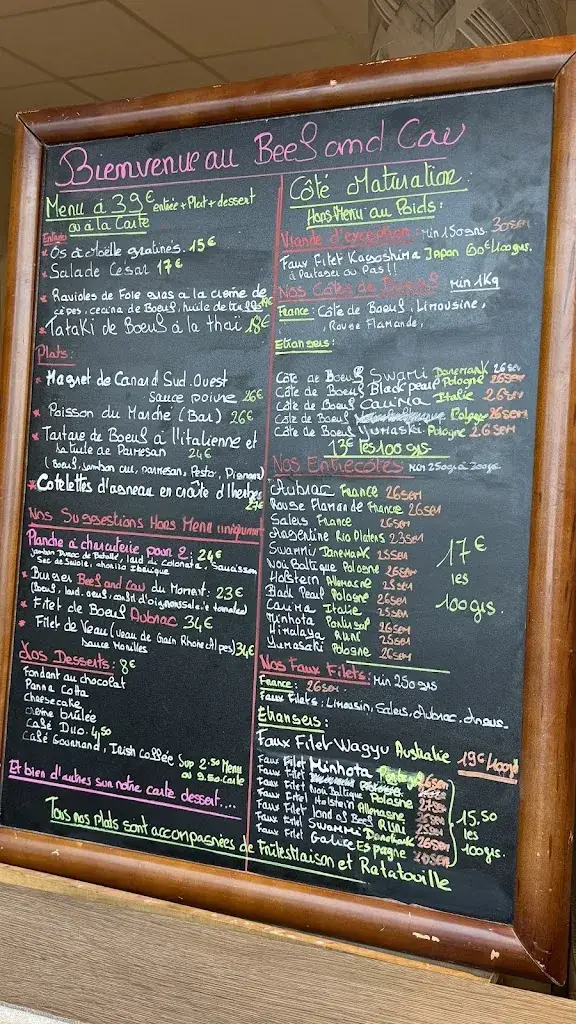 Bienvenue au Beef and Cav
Menu à 39€ entrée + Plat + dessert
ou à la Carte
Entrées
* Os à Moëlle gratinés. 15€
* Salade César 17€
* Ravioles de Foie gras à la crème de
cèpes, cecina de Boeuf, huile de truffes
* Tataki de Boeuf à la thaï 18€
Plats:
* Magret de Canard Sud-Ouest
sauce poivre 26€
* Poisson du Marché (Bar) 26€
* Tartare de Boeuf à l'italienne et
sa tuile de Parmesan 24€
(Boeuf, jambon cru, parmesan, Pesto, Pignons)
* Cotelettes d'agneau en croûte d'herbes
27€
Nos Suggestions Hors Menu uniquement
Planche à charcuterie pour 2: 24€
Sec de Savoie, chorizo Ibérique
* Burger Beef and Cav du Moment: 23€
* Filet de Boeuf Aubrac 34€
* Filet de Veau (Veau de Grain Rhône Alpes) 34€
Sauce Morilles
Nos Desserts: 8€
Fondant au chocolat
Panna Cotta
Cheesecake
Crème brûlée
Café Duo. 4,50
Café Gourmand, Irish Coffee Sup 2.50 Menu
ou 9.50 Carte
Et bien d'autres sur notre carte dessert....
Tous nos plats sont accompagnées de Frites Maison et Ratatouille
Côté Maturation:
Hors Menu au Poids:
Viande d'exception: Min 150grs. 30sem
Faux Filet Kagoshima Japon 60€ 100grs.
à Partager ou Pas!!
Nos Côtes de Boeuf: Min 1Kg
France: Côte de Boeuf, Limousine,
Rouge Flamande,
Etrangers:
Côte de Boeuf Swami Danemark 26sem
Côte de Boeuf Black pearl Pologne 26sem
Côte de Boeuf Caxina Italie 26sem
Côte de Boeuf Pologne 26sem
Côte de Boeuf Yumaski Pologne 26sem
13€ les 100 grs
Nos Entrecôtes Min 250grs à 300grs
Aubrac France 26sem
Rouge Flamande France 26sem
Salers France 26sem
Argentine Rio Platens 23sem
Swammi Danemark 25sem
Noir Baltique Pologne 26sem
Holstein Allemagne 25sem
Black Pearl Pologne 26sem
Caxina Italie 25sem
Minhota Portugal 26sem
Himalaya RUNI 25sem
Yumasaki Pologne 26sem
17€
les
100grs.
Nos Faux Filets: Min 250grs
France: 26sem.
Faux Filets: Limousin, Salers, Aubrac, Angus.
Etrangers:
Faux Filet Wagyu Australie 19€ 100grs
Faux Filet Minhota Portugal 26sem
Faux Filet
Faux Filet Noir Baltique Pologne 27sem
Faux Filet Holstein Allemagne 26sem
Faux Filet Lond of Beef RUNI 25sem
Faux Filet Swammi Danemark 26sem
Faux Filet Galice Espagne 20sem
15,50
les
100grs.